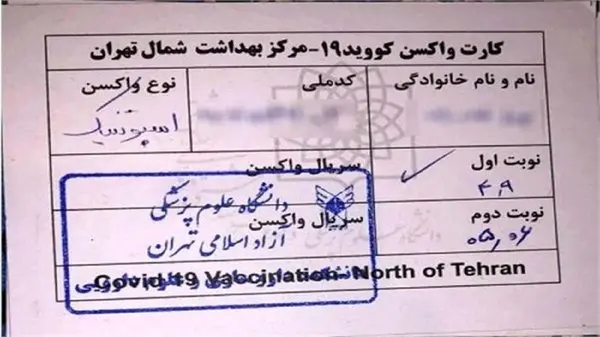 کارت واکسن کووید۱۹-مرکز بهداشت شمال تهران
نام و نام خانوادگی
کدملی
نوع واکسن
اسپوتنیک
نوبت اول
سریال واکسن
۴,۹
نوبت دوم
سریال واکسن
۰۵,۰۶
دانشگاه علوم پزشکی
آزاد اسلامی تهران
Covid 19 Vabcination- North of Tehran